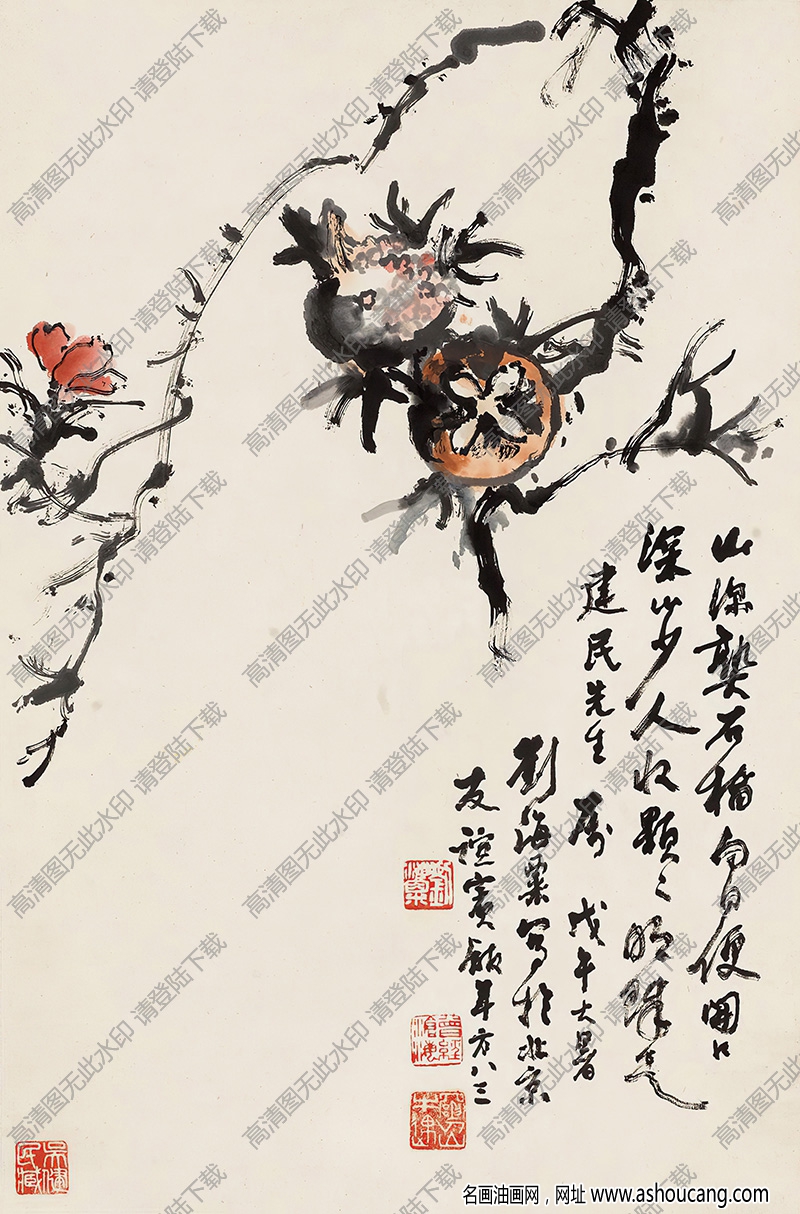 山深熟石榴向日便開口
深山少人收顆〻明珠走
建民先生屬 戊午大暑
劉海粟写於北京
友誼賓館年方八三
劉海粟
曾經滄海
高清图无此水印 请登陆下载
名画油画网，网址 www.ashoucang.com